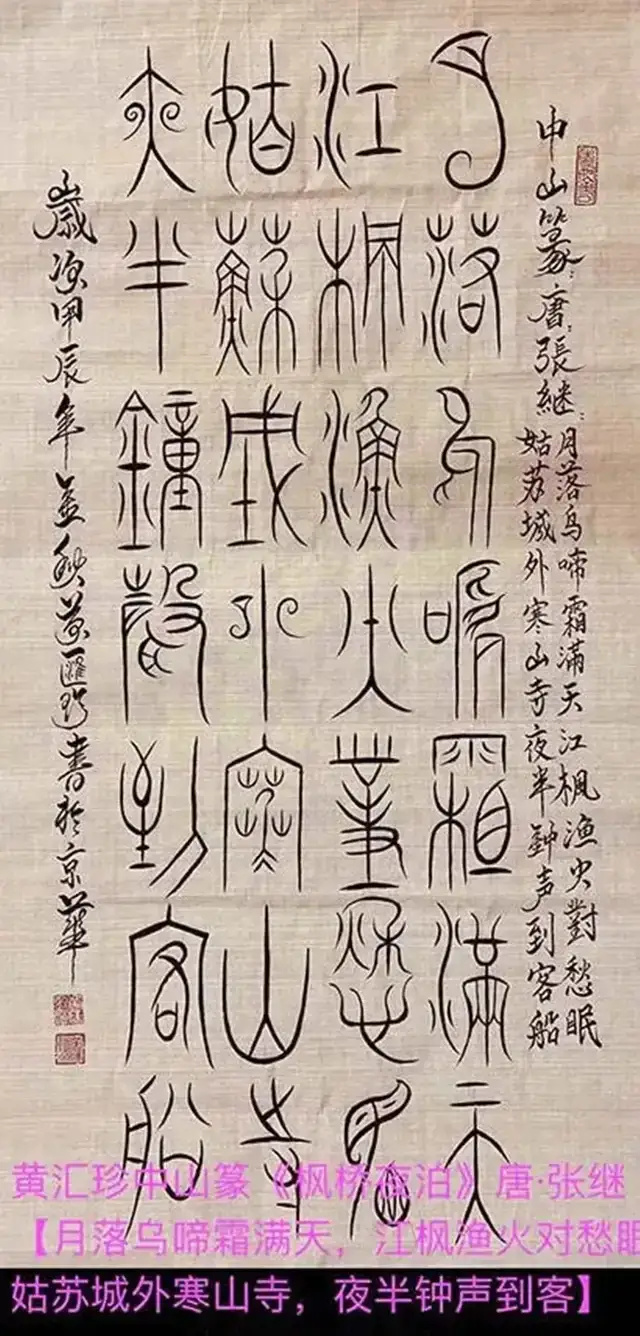 中山篆：唐：張継：月落乌啼霜滿天江枫渔火對愁眠
姑苏城外寒山寺夜半鈡声到客船
月落烏啼霜滿天
江楓漁火對愁眠
姑蘇城外寒山寺
夜半鐘聲到客船
歲次甲辰年孟秋黄匯珍書於京華
黄汇珍中山篆《枫桥夜泊》唐·张继
【月落乌啼霜满天，江枫渔火对愁眠
姑苏城外寒山寺，夜半钟声到客】